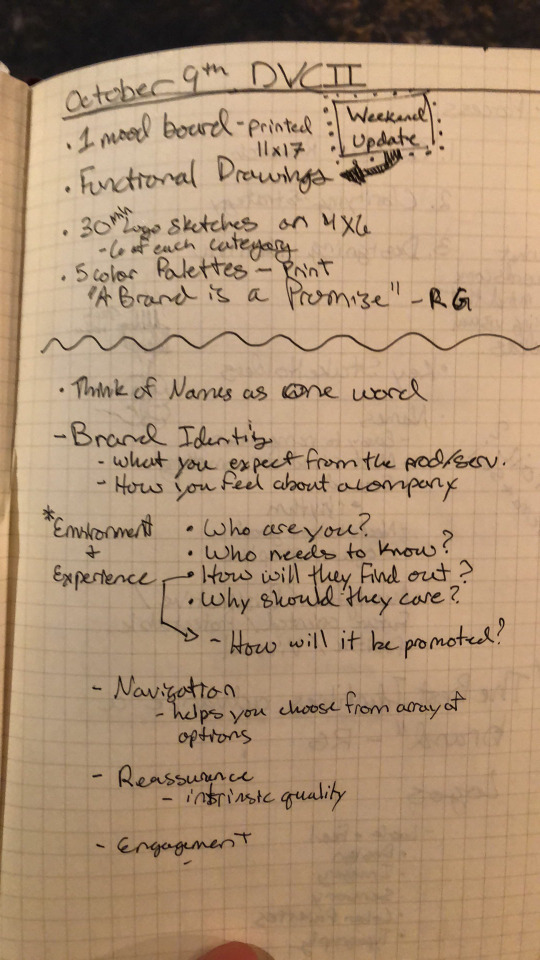 October 9th DVC II
Weekend
Update
• 1 mood board - printed
11x17
• Functional Drawings
• 30 min Logo sketches on 4x6
- 6 of each category
• 5 color Palettes - Print
"A Brand is a Promize" - RG
• Think of Names as one word
- Brand Identity
- what you expect from the prod/serv.
- How you feel about a company
*Environment
+
Experience
• Who are you?
• Who needs to know?
• How will they find out?
• Why should they care?
- How will it be promoted?
- Navigation
- helps you choose from array of
options
- Reassurance
- intrinsic quality
- Engagement
-